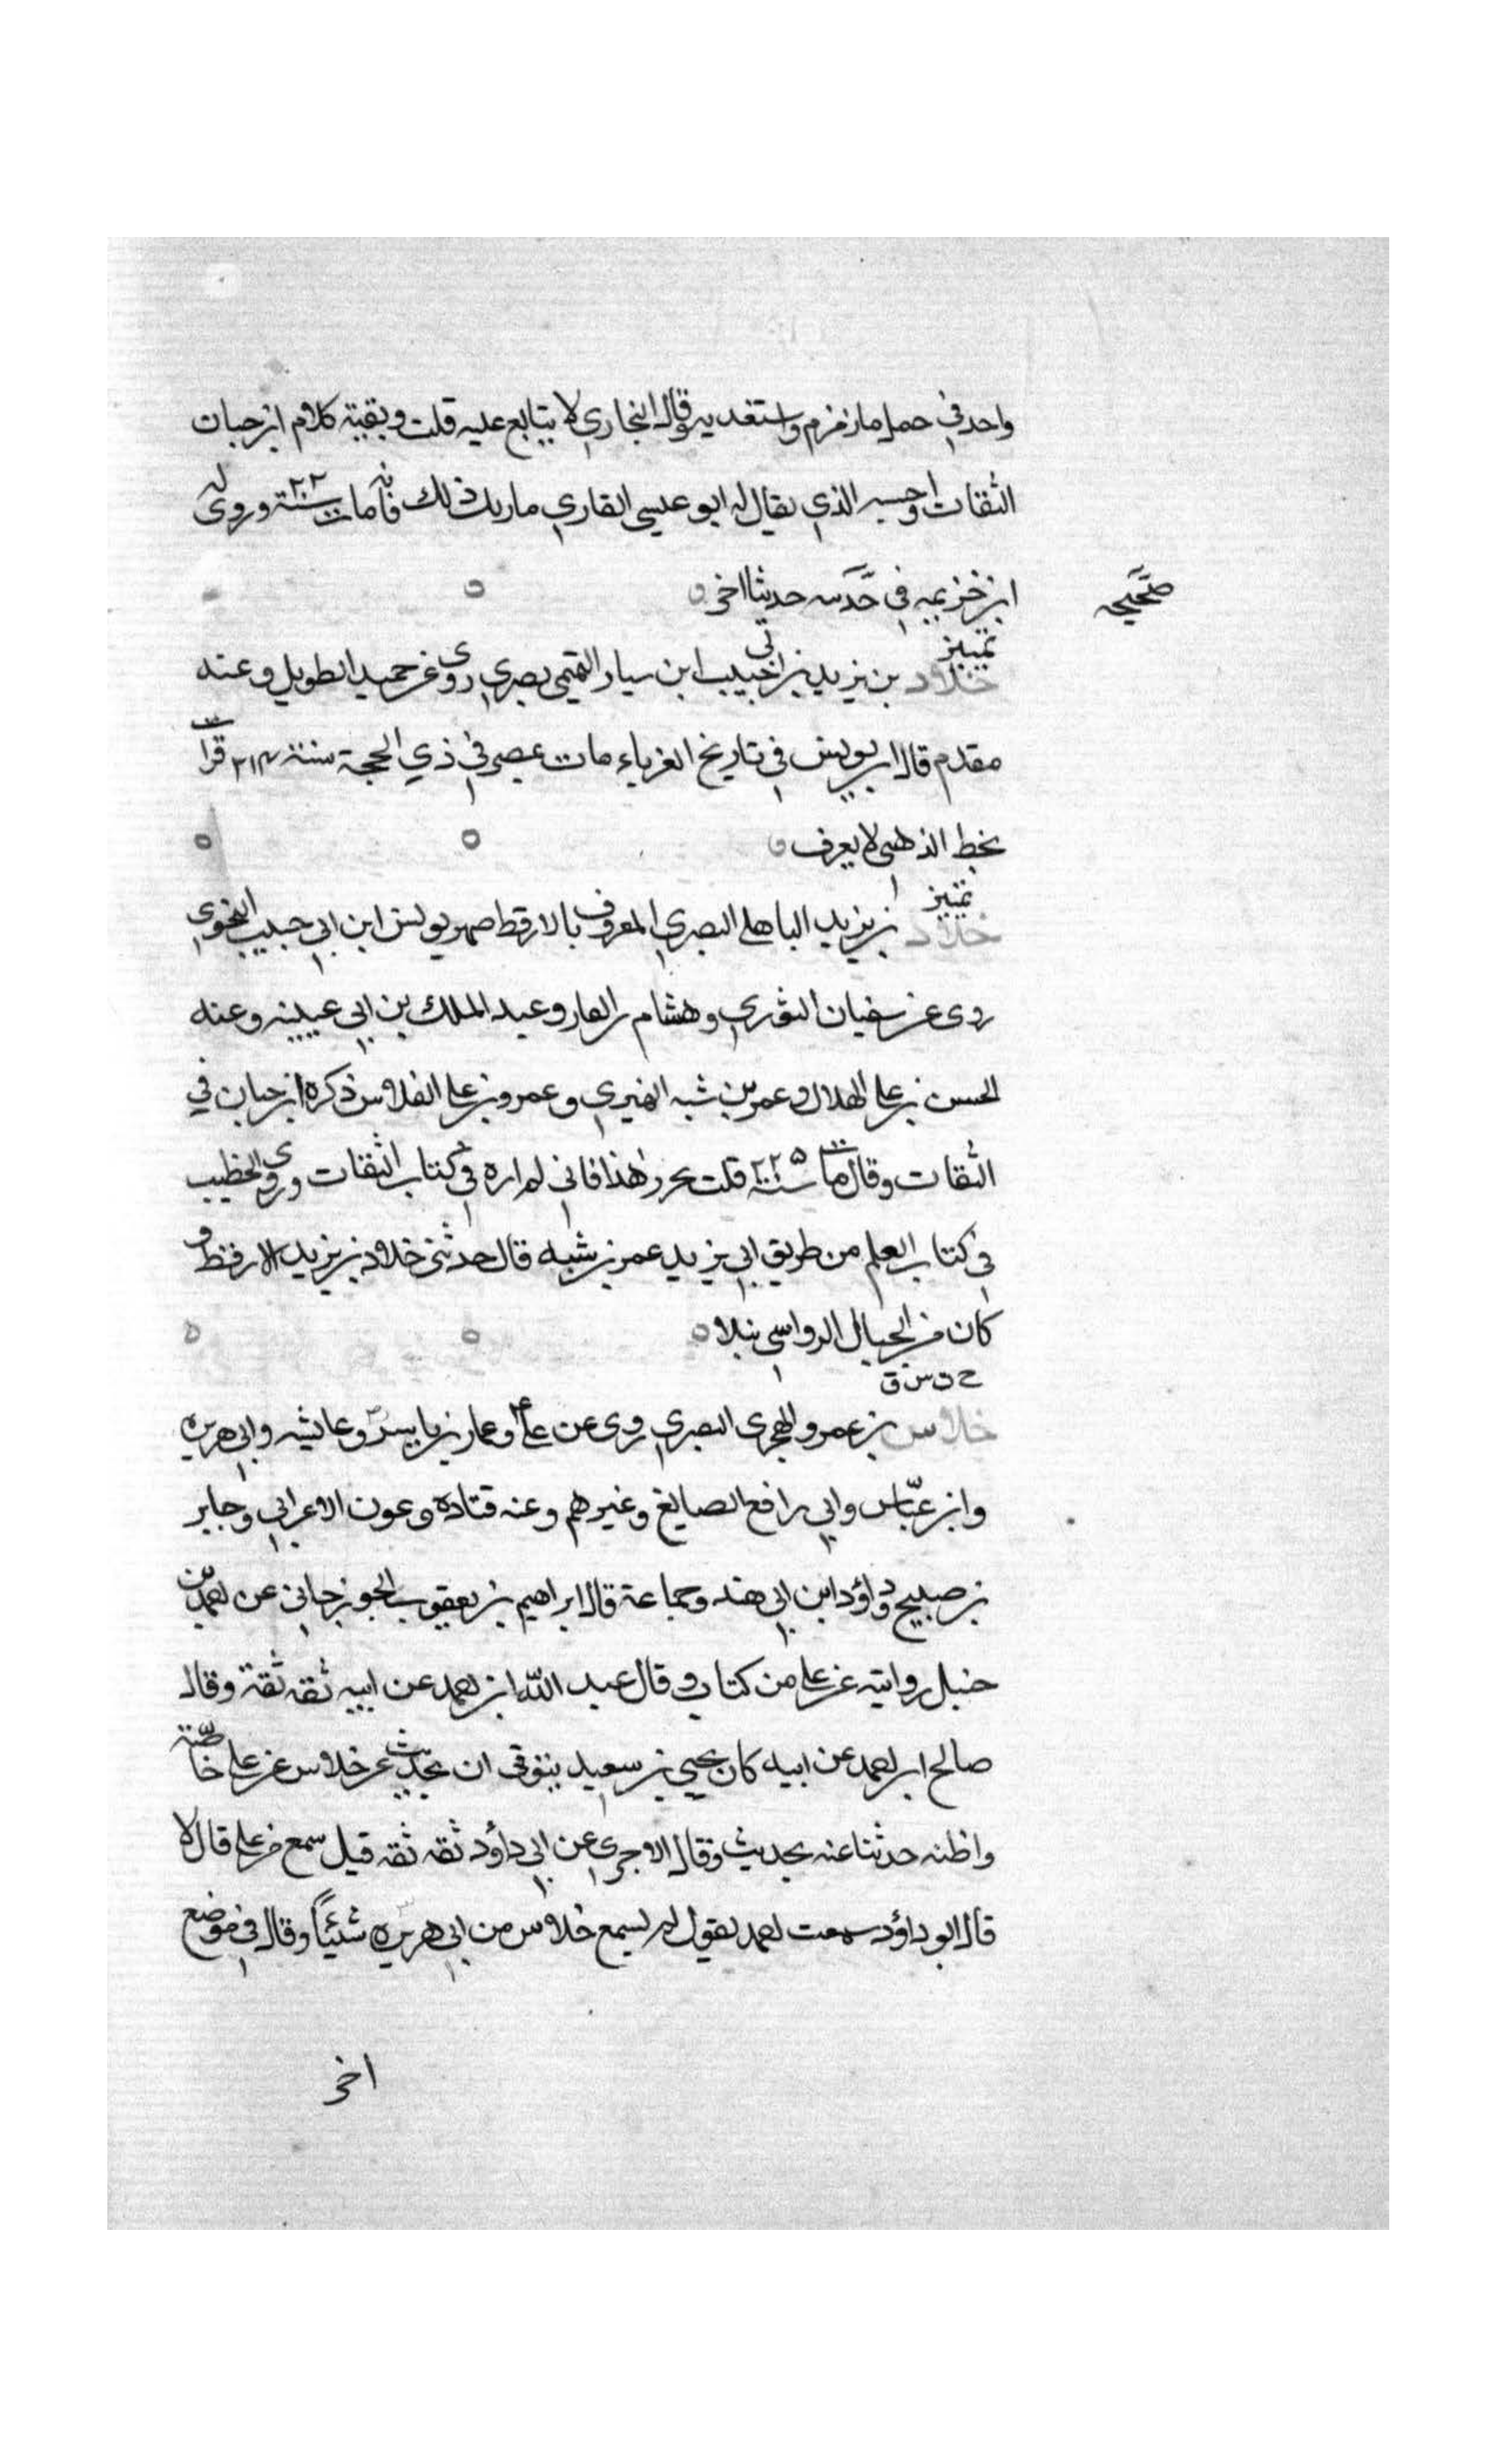 واحد في حمل ما زمزم واستغديه وقال البخاري لا يتابع عليه قلت وبقية كلام ابن حبان
الثقات واحسبه الذي يقال له ابو عيسى القاري مات بك ذلك فانه مات سنة ٢٢ وروى له
ابن خزيمه في حديثا اخر
صحيحه
تمييز
خلاد بن يزيد بن ابي حبيب ابن سيار التميمي بصري روى عن حميد الطويل وعنه
مقدم قال ابن يونس في تاريخ الغرباء مات بمصر في ذي الحجة سنة ٣١٤ قرات
بخط الذهبي لا يعرف
تمييز
خلاد بن يزيد الباهلي البصري المعروف بالارقط صهر يونس ابن ابي حبيب النحوي
روى عن سفيان الثوري وهشام بن الغار وعبد الملك بن ابي عيينه وعنه
الحسن بن علي الهلال وعمر بن شبه النميري وعمرو بن علي الفلاس ذكره ابن حبان في
الثقات وقال مات سنة ٢٢٥ قلت يحرر هذا فاني لم اره في كتاب الثقات وروى الخطيب
في كتاب العلم من طريق ابي يزيد عمر بن شبه قال حدثني خلاد بن يزيد الارقط و
كان من الجبال الرواسي نبلا
خ د ت س ق
خلاس بن عمرو الهجري البصري روى عن علي وعمار بن ياسر وعايشه وابي هريره
وابن عباس وابي رافع الصايغ وغيرهم وعنه قتادة وعون الاعرابي وجابر
بن صبيح وداؤد ابن ابي هند وجماعة قال ابراهيم بن يعقوب الجوزجاني عن احمد بن
حنبل روايته عن علي من كتاب وقال عبد الله ابن احمد عن ابيه ثقه ثقة وقال
صالح ابن احمد عن ابيه كان يحيي بن سعيد يتوقى ان يحدث عن خلاس عن علي خاصة
واظنه حدثنا عنه بحديث وقال الاجري عن ابي داؤد ثقه ثقه قيل سمع من علي قال لا
قال ابو داؤد سمعت احمد يقول لم يسمع خلاس من ابي هريره شيئاً وقال في موضع
اخر